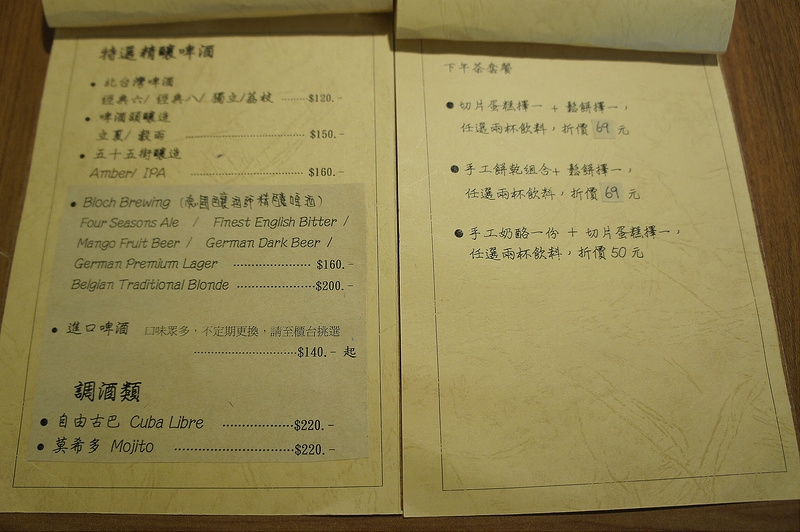 特選精釀啤酒
• 北台灣啤酒
經典六/ 經典八/ 獨立/荔枝 ………$120.-
• 啤酒頭釀造
立夏/ 穀雨 ………$150.-
• 五十五街釀造
Amber/ IPA ………$160.-
• Bloch Brewing (德國釀酒師精釀啤酒)
Four Seasons Ale / Finest English Bitter /
Mango Fruit Beer / German Dark Beer /
German Premium Lager ………$160.-
Belgian Traditional Blonde ………$200.-
• 進口啤酒 口味眾多，不定期更換，請至櫃台挑選
………$140.- 起
調酒類
• 自由古巴 Cuba Libre ………$220.-
• 莫希多 Mojito ………$220.-
下午茶套餐
• 切片蛋糕擇一 + 鬆餅擇一，
任選兩杯飲料，折價 69 元
• 手工餅乾組合+ 鬆餅擇一，
任選兩杯飲料，折價 69 元
• 手工奶酪一份 + 切片蛋糕擇一，
任選兩杯飲料，折價 50 元